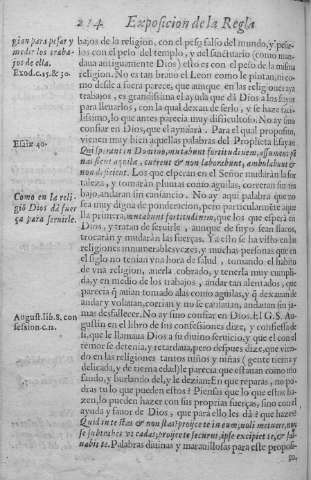 214 Exposicion de la Regla
gion para pesar y
medir los traba-
jos de ella.
Exod. c. 25. & 30.
bajos de la religion, con el peso falso del mundo, y pesar-
los con el peso del templo, y del santuario, (como man-
daua antiguamente Dios) esto es con el peso de la misma
religion. No es tan brauo el Leon como le pintan, ni co-
mo desde a fuera parece, que aunque en las religiones aya
trabajos, es grandissima el ayuda que dà Dios a los suyos
para lleuarlos, con la qual dexan de serlo, y se haze faci-
lissimo, lo que antes parecia muy dificultoso. No ay sino
confiar en Dios, que el ayudarà. Para el qual proposito,
vienen muy bien aquellas palabras del Propheta Esayas
Esaiæ 40.
Qui sperant in Domino, mutabunt fortitudinem, assument pen
nas sicut aquila, current & non laborabunt, ambulabunt &
non deficient. Los que esperan en el Señor mudarán la for
taleza, y tomarán plumas como aguilas, correran sin tra
bajo, andaran sin cansancio. No ay aqui palabra que no
Como en la reli-
giõ Dios dà fuer
ça para seruirle.
sea muy digna de ponderacion, pero particularmẽte aque
lla primera, mutabunt fortitudinem, que los que esperã en
Dios, y tratan de seruirle, aunque de suyo sean flacos,
trocarán y mudarán las fuerças. Ya esto se ha visto en la
religiones innumerables vezes, y muchas personas que en
el siglo no tenian vna hora de salud, tomando el habito
de vna religion, auerla cobrado, y tenerla muy cumpli-
da, y en medio de los trabajos, andar tan alentados, que
parecia q̃ auian tomado alas como aguilas, y q̃ dexauan de
andar y volauan, corrian y no se cansauan, andauan sin ja-
mas desfallecer. No ay sino confiar en Dios. El G. S. Au-
August. lib. 8. con
fession. c. 11.
gustin en el libro de sus confessiones dize, y confiessa de
si, que le llamaua Dios a su diuino seruicio, y que el con el
temor se detenia, y retardaua, pero despues dize, que vien-
do en las religiones tantos niños y niñas (gente tierna y
delicada, y de tierna edad) le parecia que estauan como mo
fando, y burlando del, y le dezian: En que reparas, no po-
dras tu lo que pueden estos? Piensas que lo que estos ha-
zen, lo pueden hazer con sus proprias fuerças, sino con el
ayuda y fauor de Dios, que para ello les dà? que hazes?
Quid in te stas & non stas? projce te in eum, noli metuere, non
se subtrahet vt cadas; projce te securus, ipse excipiet te, & sa-
nabit te. Palabras diuinas y marauillosas para este proposi-